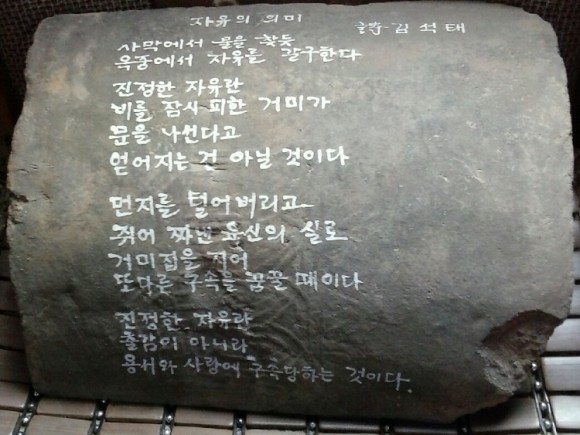 자유의 의미
詩 김석태
사막에서 물을 찾듯
옥중에서 자유를 갈구한다
진정한 자유란
비를 잠시 피한 거미가
문을 나선다고
얻어지는 건 아닐 것이다
먼지를 털어버리고
쥐어 짜낸 육신의 실로
거미집을 지어
또다른 구속을 꿈꿀 때이다
진정한 자유란
출감이 아니라
용서와 사랑에 구속당하는 것이다.